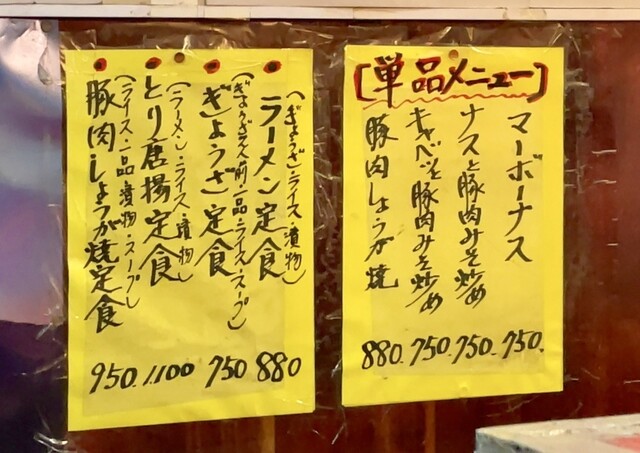 [単品メニュー]
マーボーナス 750.
ナスと豚肉みそ炒め 750.
キャベツと豚肉みそ炒め 750.
豚肉しょうが焼 880.
ラーメン定食 880
(ぎょうざ・ライス・漬物)
ぎょうざ定食 750
(ぎょうざ二人前・一品・ライス・スープ)
とり唐揚定食 1.100
(ラーメン・ライス・漬物)
豚肉しょうが焼定食 950.
(ライス・一品・漬物・スープ)